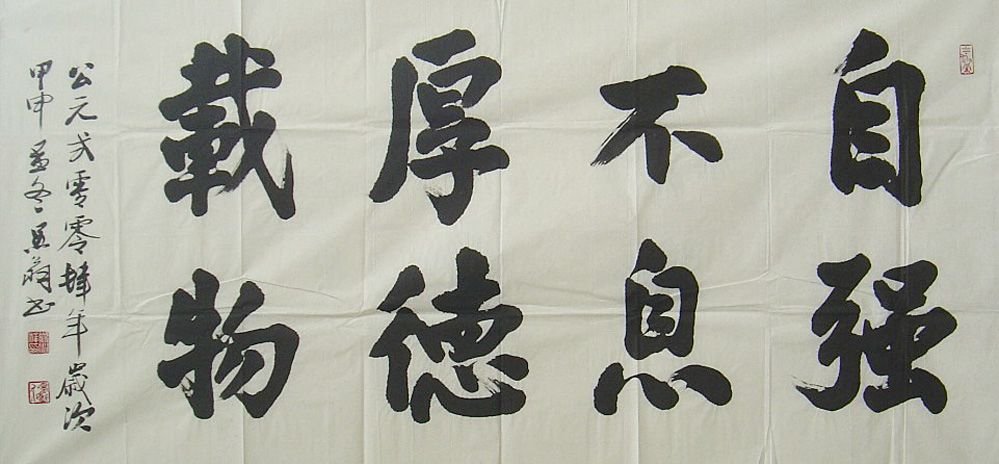 自强
不息
厚德
載物
公元弐零零肆年歲次
甲申孟冬
書